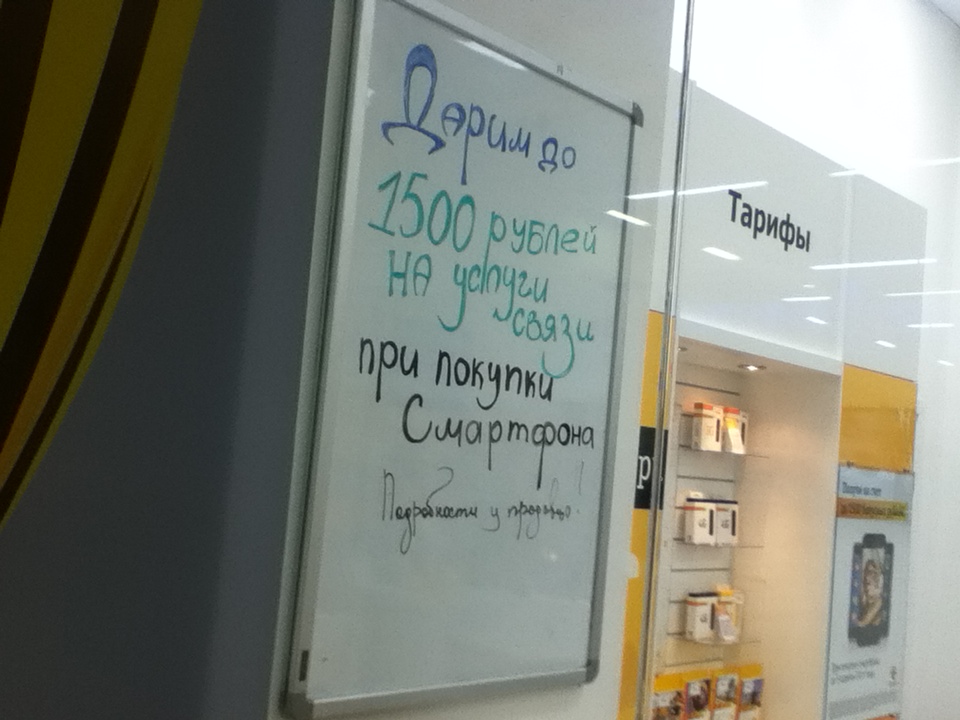 Дарим до
1500 рублей
на услуги
связи
при покупки
Смартфона
Подробности у продавца!
Тарифы